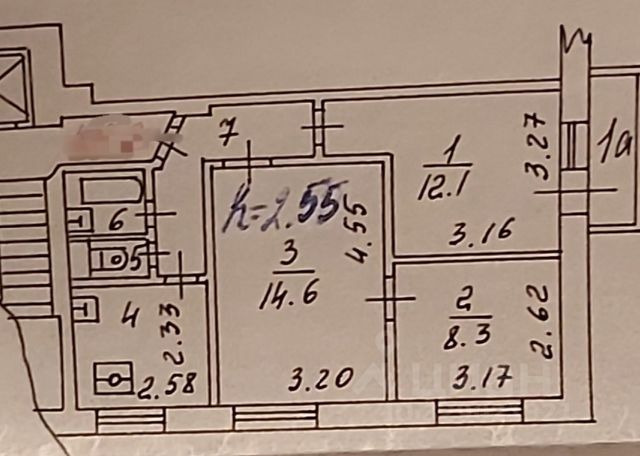 7
1
12.1
3.27
3.16
1а
6
5
h=2.55
3
14.6
4.55
3.20
4
2.33
2.58
2
8.3
2.62
3.17